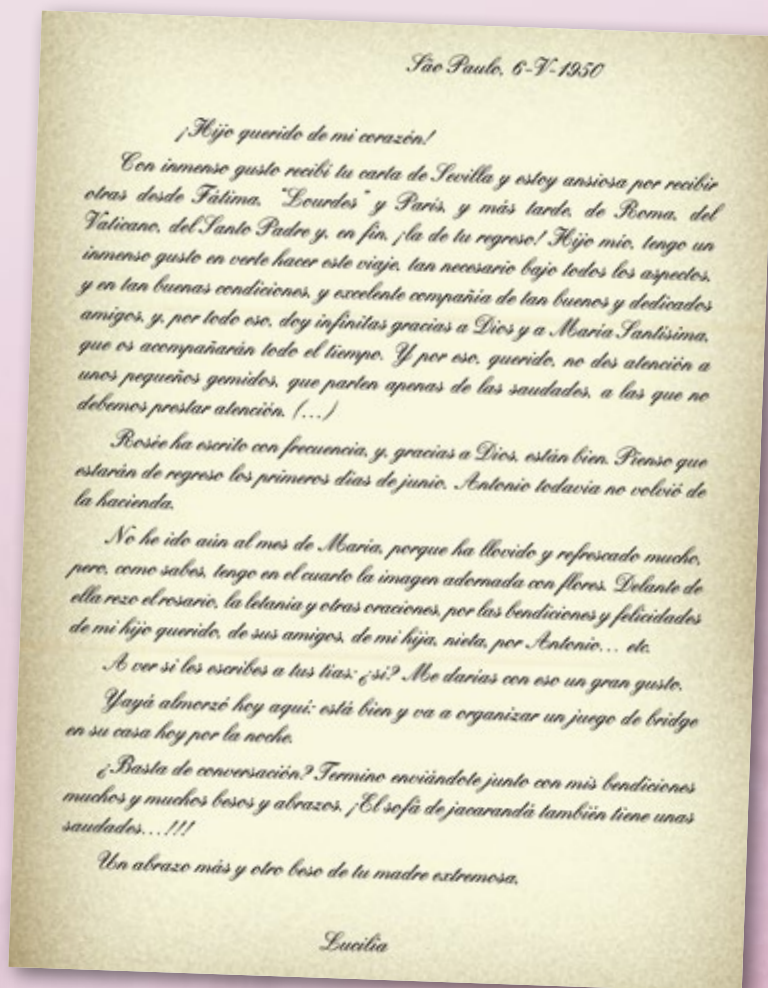 São Paulo, 6-V-1950
¡Hijo querido de mi corazón!
Con inmenso gusto recibí tu carta de Sevilla y estoy ansiosa por recibir
otras desde Fátima, "Lourdes" y París, y más tarde, de Roma, del
Vaticano, del Santo Padre y, en fin, ¡la de tu regreso! Hijo mío, tengo un
inmenso gusto en verte hacer este viaje, tan necesario bajo todos los aspectos,
y en tan buenas condiciones, y excelente compañía de tan buenos y dedicados
amigos, y, por todo eso, doy infinitas gracias a Dios y a María Santísima,
que os acompañarán todo el tiempo. Y por eso, querido, no des atención a
unos pequeños gemidos, que parten apenas de las saudades, a las que no
debemos prestar atención. (...)
Rosée ha escrito con frecuencia, y, gracias a Dios, están bien. Pienso que
estarán de regreso los primeros días de junio. Antonio todavía no volvió de
la hacienda.
No he ido aún al mes de María, porque ha llovido y refrescado mucho,
pero, como sabes, tengo en el cuarto la imagen adornada con flores. Delante de
ella rezo el rosario, la letanía y otras oraciones, por las bendiciones y felicidades
de mi hijo querido, de sus amigos, de mi hija, nieta, por Antonio... etc.
A ver si les escribes a tus tías: ¿sí? Me darías con eso un gran gusto.
Yayá almorzó hoy aquí: está bien y va a organizar un juego de bridge
en su casa hoy por la noche.
¿Basta de conversación? Termino enviándote junto con mis bendiciones
muchos y muchos besos y abrazos. ¡El sofá de jacarandá también tiene unas
saudades...!!!
Un abrazo más y otro beso de tu madre extremosa,
Lucilia